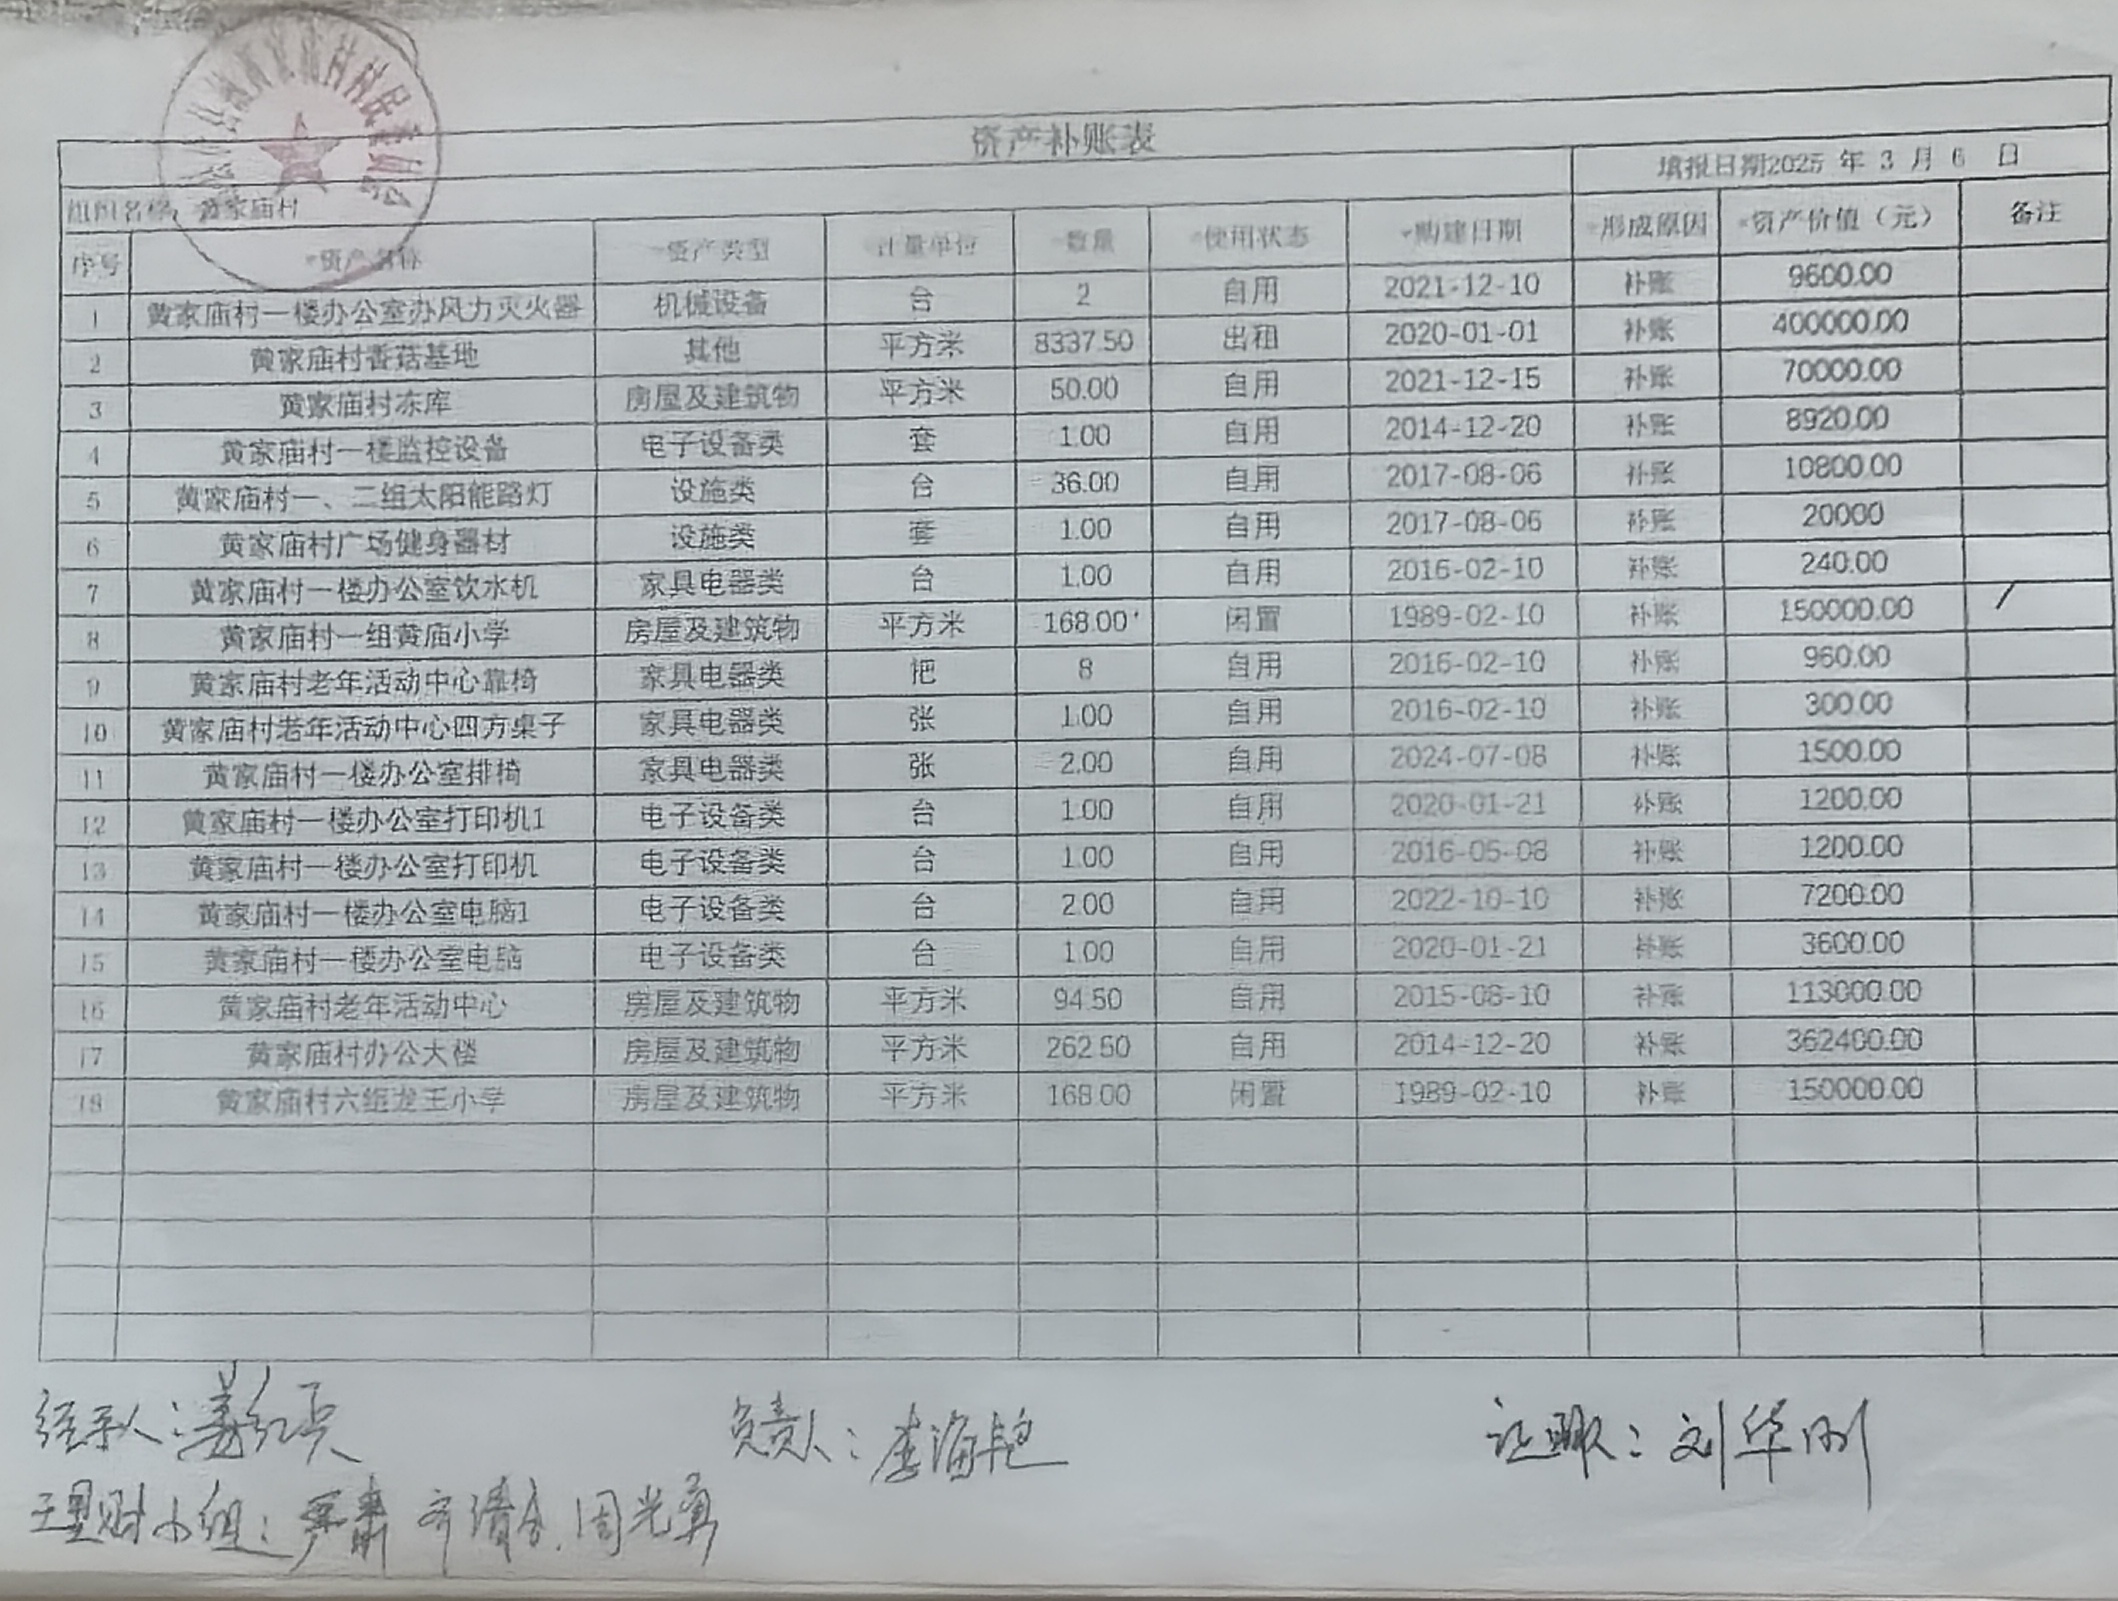 资产补账表
填报日期2025 年 3 月 6 日
组织名称：黄家庙村
序号 *资产名称 *资产类型 计量单位 *数量 *使用状态 *购建日期 *形成原因 *资产价值（元） 备注
1 黄家庙村一楼办公室办风力灭火器 机械设备 台 2 自用 2021-12-10 补账 9600.00
2 黄家庙村香菇基地 其他 平方米 8337.50 出租 2020-01-01 补账 400000.00
3 黄家庙村冻库 房屋及建筑物 平方米 50.00 自用 2021-12-15 补账 70000.00
4 黄家庙村一楼监控设备 电子设备类 套 1.00 自用 2014-12-20 补账 8920.00
5 黄家庙村一、二组太阳能路灯 设施类 台 36.00 自用 2017-08-06 补账 10800.00
6 黄家庙村广场健身器材 设施类 套 1.00 自用 2017-08-06 补账 20000
7 黄家庙村一楼办公室饮水机 家具电器类 台 1.00 自用 2016-02-10 补账 240.00
8 黄家庙村一组黄庙小学 房屋及建筑物 平方米 168.00 闲置 1989-02-10 补账 150000.00 /
9 黄家庙村老年活动中心靠椅 家具电器类 把 8 自用 2016-02-10 补账 960.00
10 黄家庙村老年活动中心四方桌子 家具电器类 张 1.00 自用 2016-02-10 补账 300.00
11 黄家庙村一楼办公室排椅 家具电器类 张 2.00 自用 2024-07-08 补账 1500.00
12 黄家庙村一楼办公室打印机1 电子设备类 台 1.00 自用 2020-01-21 补账 1200.00
13 黄家庙村一楼办公室打印机 电子设备类 台 1.00 自用 2016-05-08 补账 1200.00
14 黄家庙村一楼办公室电脑1 电子设备类 台 2.00 自用 2022-10-10 补账 7200.00
15 黄家庙村一楼办公室电脑 电子设备类 台 1.00 自用 2020-01-21 补账 3600.00
16 黄家庙村老年活动中心 房屋及建筑物 平方米 94.50 自用 2015-08-10 补账 113000.00
17 黄家庙村办公大楼 房屋及建筑物 平方米 262.50 自用 2014-12-20 补账 362400.00
18 黄家庙村六组龙王小学 房屋及建筑物 平方米 168.00 闲置 1989-02-10 补账 150000.00
经手人：姜红兵 负责人：李海艳 证明人：刘华刚
理财小组：严肃 周光勇